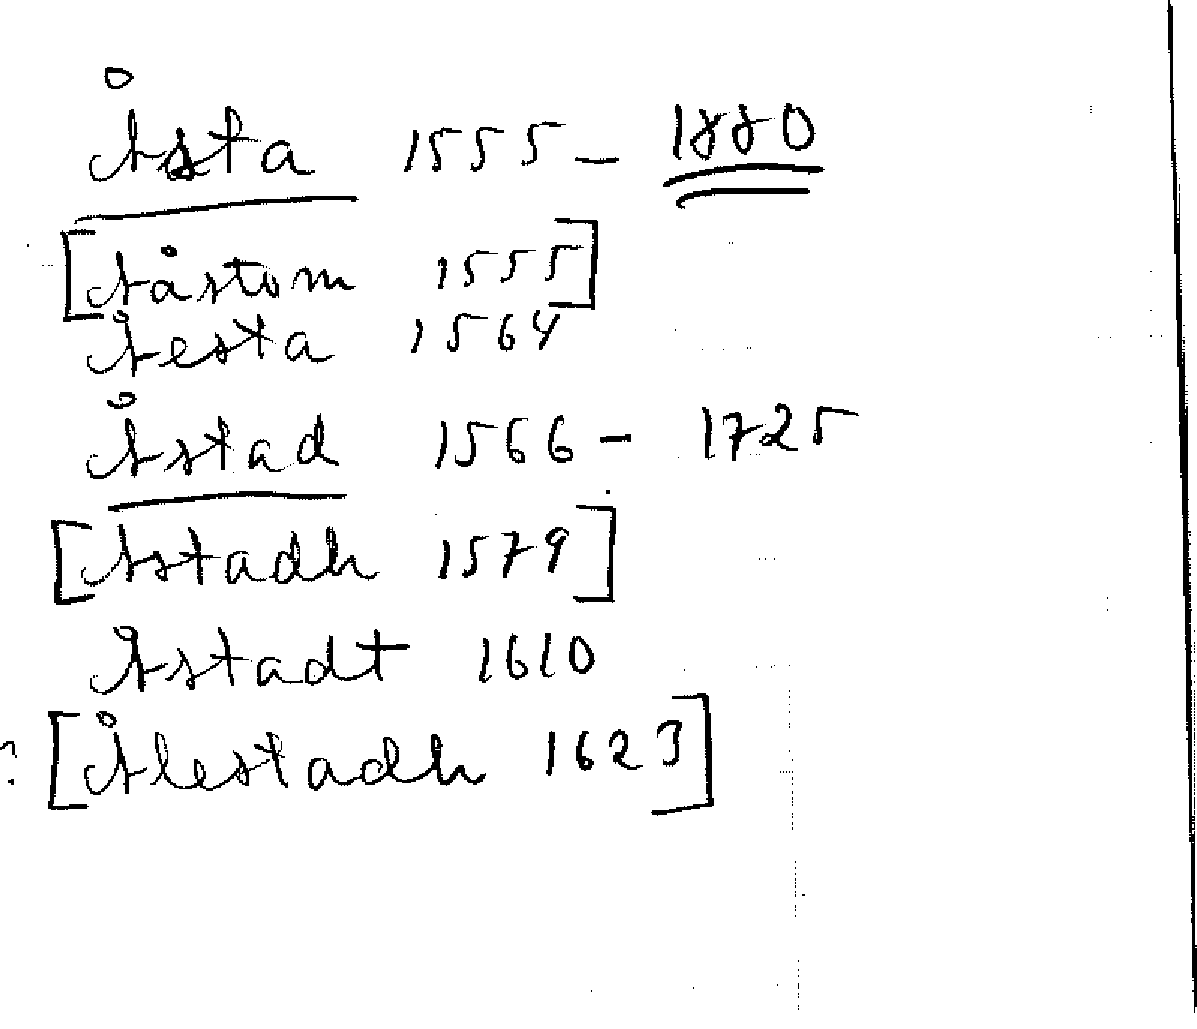 Åsta 1555 – 1880
[Aåstom 1555]
Aesta 1564
Åstad 1566 – 1725
[Astadh 1579]
Astadt 1610
? [Ålestadh 1623]